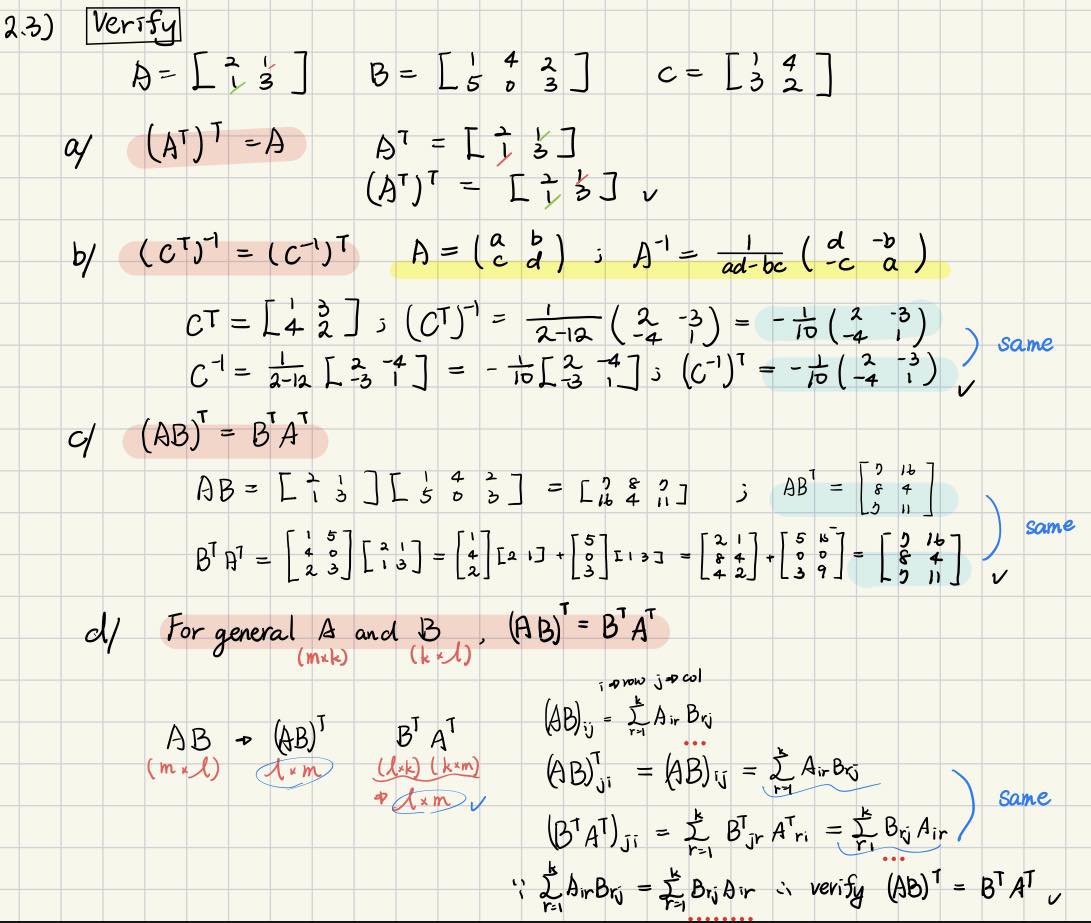 2.3) Verify
A = [ 2 1 ; 1 3 ] B = [ 1 4 2 ; 5 0 3 ] C = [ 1 4 ; 3 2 ]
a/ (Aᵀ)ᵀ = A Aᵀ = [ 2 1 ; 1 3 ]
(Aᵀ)ᵀ = [ 2 1 ; 1 3 ] ✓
b/ (Cᵀ)⁻¹ = (C⁻¹)ᵀ A = ( a b ; c d ) ; A⁻¹ = 1/(ad-bc) ( d -b ; -c a )
Cᵀ = [ 1 3 ; 4 2 ] ; (Cᵀ)⁻¹ = 1/(2-12) ( 2 -3 ; -4 1 ) = -1/10 ( 2 -3 ; -4 1 )
same
C⁻¹ = 1/(2-12) [ 2 -4 ; -3 1 ] = -1/10 [ 2 -4 ; -3 1 ] ; (C⁻¹)ᵀ = -1/10 ( 2 -3 ; -4 1 ) ✓
c/ (AB)ᵀ = BᵀAᵀ
AB = [ 2 1 ; 1 3 ] [ 1 4 2 ; 5 0 3 ] = [ 7 8 7 ; 16 4 11 ] ; ABᵀ = [ 7 16 ; 8 4 ; 7 11 ]
same
BᵀAᵀ = [ 1 5 ; 4 0 ; 2 3 ] [ 2 1 ; 1 3 ] = [ 1 ; 4 ; 2 ] [ 2 1 ] + [ 5 ; 0 ; 3 ] [ 1 3 ] = [ 2 1 ; 8 4 ; 4 2 ] + [ 5 15 ; 0 0 ; 3 9 ] = [ 7 16 ; 8 4 ; 7 11 ] ✓
d/ For general A and B, (AB)ᵀ = BᵀAᵀ
(m×k) (k×l)
i ⇒ row j ⇒ col
(AB)ij = Σ_{r=1}^{k} Air Brj
AB → (AB)ᵀ Bᵀ Aᵀ
(m×l) l×m (l×k) (k×m)
⇒ l×m ✓
(AB)ᵀji = (AB)ij = Σ_{r=1}^{k} Air Brj
same
(BᵀAᵀ)ji = Σ_{r=1}^{k} Bᵀjr Aᵀri = Σ_{r=1}^{k} Brj Air
∵ Σ_{r=1}^{k} Air Brj = Σ_{r=1}^{k} Brj Air ∴ verify (AB)ᵀ = BᵀAᵀ ✓